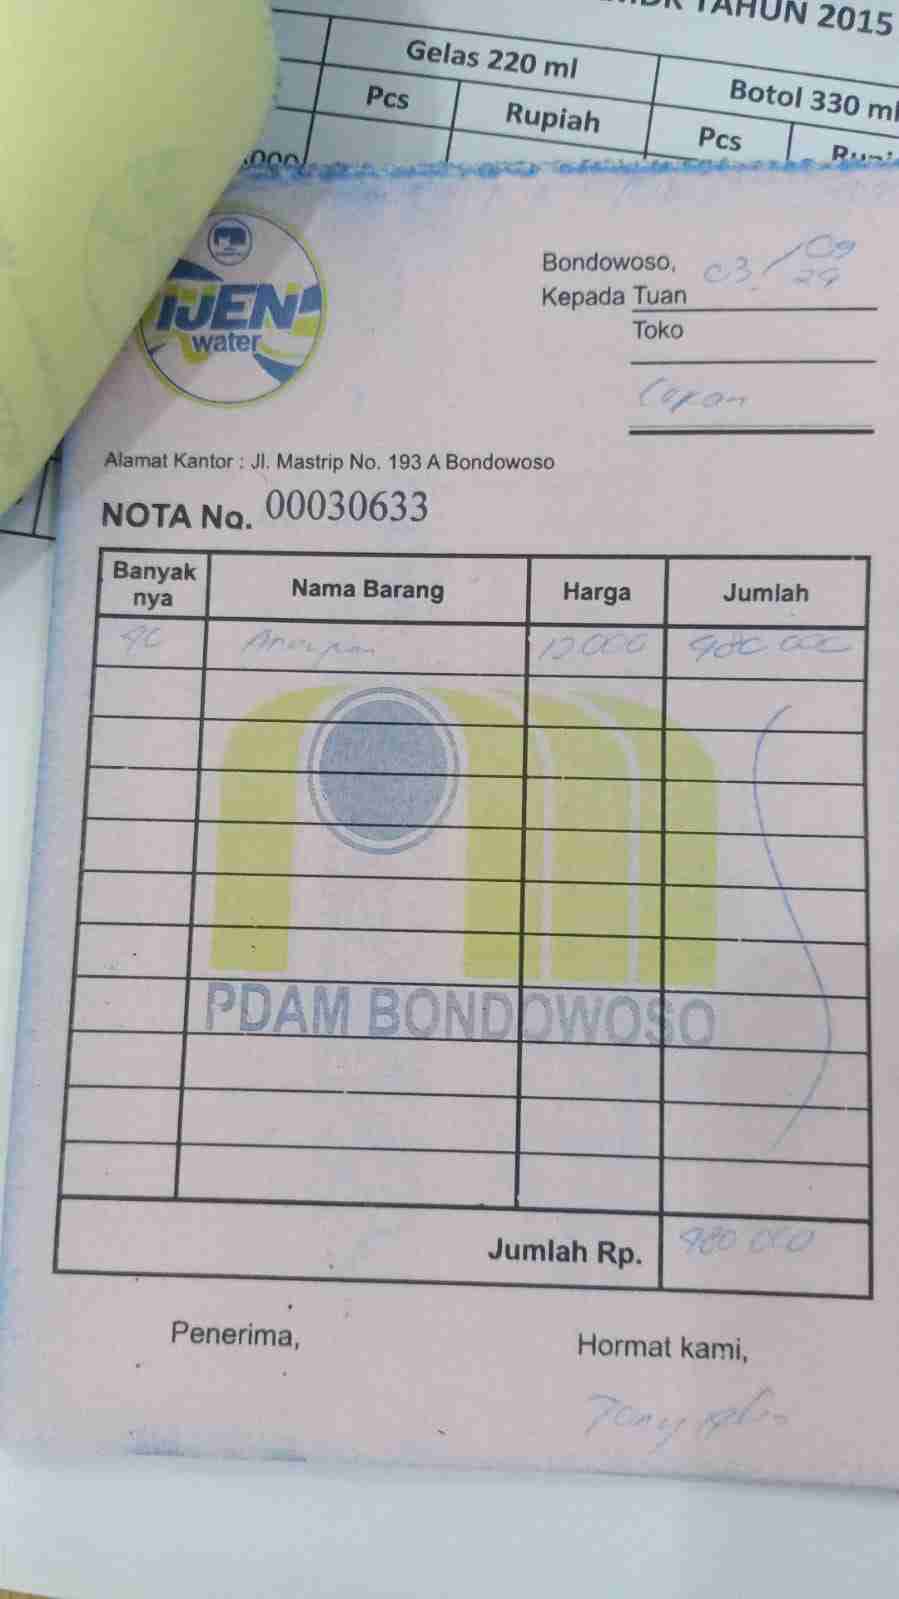 TAHUN 2015
Gelas 220 ml
Botol 330 ml
Pcs
Rupiah
Pcs
.000
IJEN
water
Bondowoso, 03/09
24
Kepada Tuan
Toko
Alamat Kantor : Jl. Mastrip No. 193 A Bondowoso
NOTA No. 00030633
Banyak nya Nama Barang Harga Jumlah
40 12000 480 000
PDAM BONDOWOSO
Jumlah Rp. 480 000
Penerima,
Hormat kami,